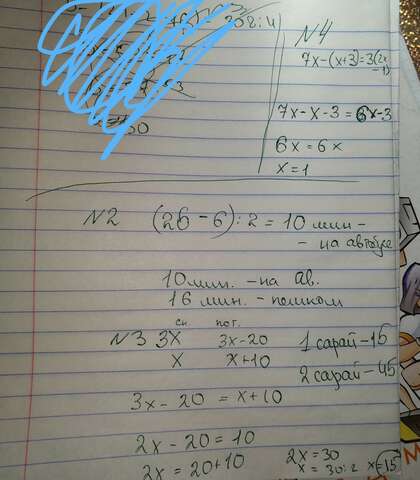 30г : 4
50
N4
7x-(x+3)=3(2x
-1)
7x-x-3=6x-3
6x=6x
x=1
N2 (26-6):2=10 мин-
- на автобусе
10 мин. - на ав.
16 мин. - пешком
сн. пот.
N3 3x 3x-20
x x+10
1 сарай-15
2 сарай-45
3x-20 = x+10
2x-20=10
2x=20+10
2x=30
x=30:2 x=15